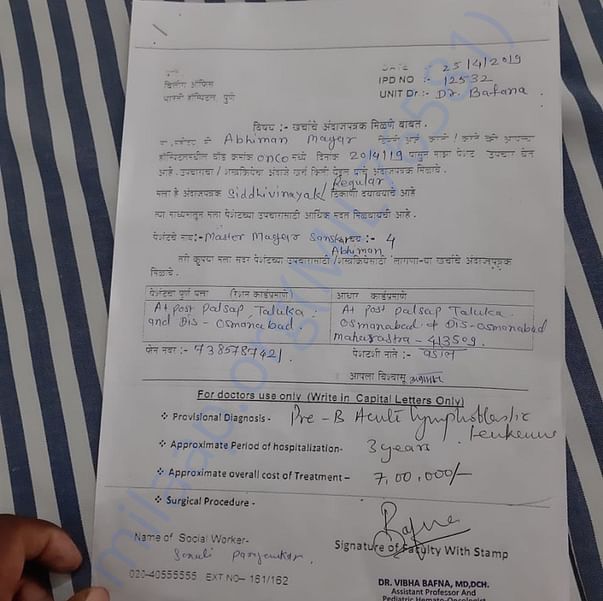 पुणे
DATE :- 25/4/2019
बिलींग ऑफिस
IPD NO :- 12532
भारती हॉस्पिटल, पुणे
UNIT Dr :- Dr. Bafana
विषय :- खर्चाचे अंदाजपत्रक मिळणे बाबत.
Abhiman Magar
हॉस्पिटलमधील वॉर्ड क्रमांक onco मध्ये दिनांक 20/4/19 पासुन माझा पेशंट उपचार घेत
आहे. उपचाराचा / शस्त्रक्रियेचा अंदाजे खर्च किती येईल याचे अंदाजपत्रक मिळावे.
मला हे अंदाजपत्रक Siddhivinayak / Regular ठिकाणी दयावयाचे आहे
त्या माध्यमातून मला पेशंटच्या उपचारासाठी आर्थिक मदत मिळवायची आहे.
पेशंटचे नाव:- Master Magar Sanskar Abhiman वय :- 4
तरी कृपया मला सदर पेशंटच्या उपचारासाठी / शस्त्रक्रियेसाठी लागणा-या खर्चाचे अंदाजपत्रक
मिळावे.
पेशंटचा पूर्ण पत्ता (रेशन कार्डप्रमाणे)
आधार कार्डप्रमाणे
At post palsap, Taluka
and Dis - Osmanabad.
At post palsap Taluka
Osmanabad & Dis-osmanabad
Maharastra - 413509.
फोन नंबर :- 7385787421.
पेशंटशी नाते :- वडील
आपला विश्वासू
For doctors use only (Write in Capital Letters Only)
❖ Provisional Diagnosis - Pre-B Acute Lymphoblastic Leukemia
❖ Approximate Period of hospitalization- 3 years
❖ Approximate overall cost of Treatment – 7,00,000/-
❖ Surgical Procedure -
Bafna
Name of Social Worker-
Signature of Faculty With Stamp
Sonali
020-40555555 EXT NO– 161/162
DR. VIBHA BAFNA, MD,DCH.
Assistant Professor And
Pediatric Hemato-Oncologist